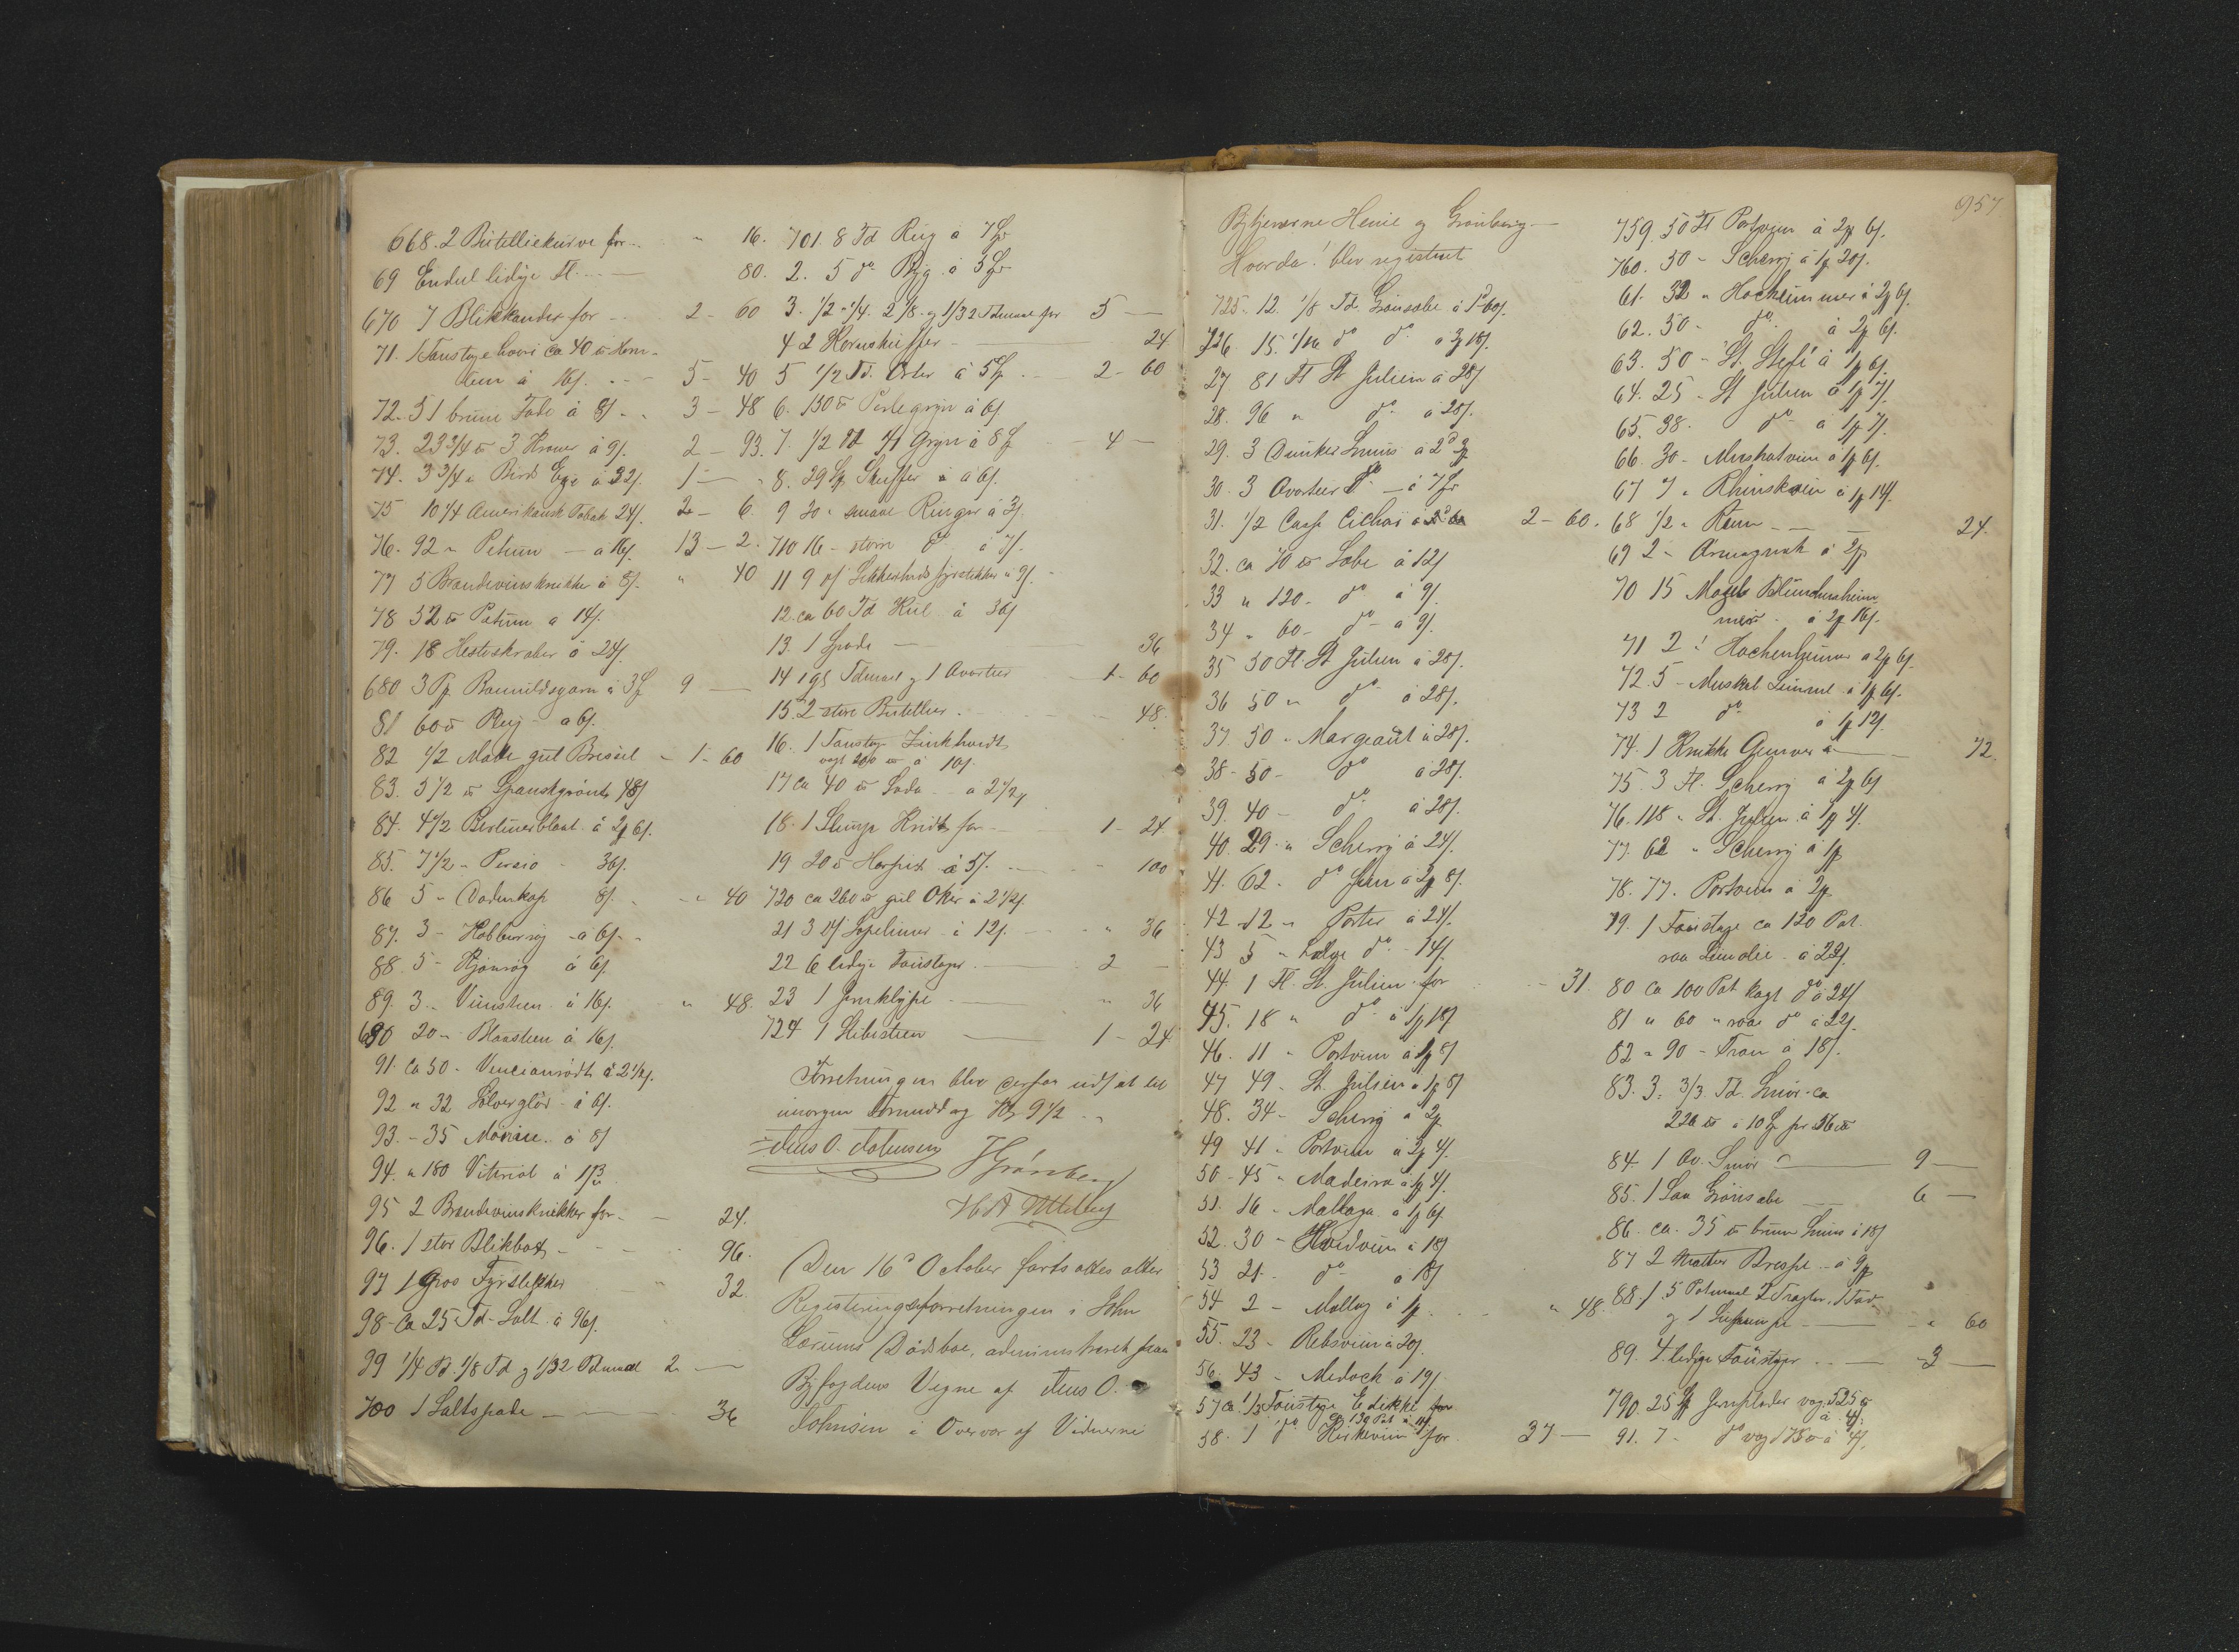 668. 2 Butelliekurve for - " 16.
69 Endel ledige Fl. - 80.
670 7 Blikkander for - 2 - 60
71. 1 Faustage hvori ca 40 ℔ Hom-
à 16 s. - 5 - 40
72. 51 brune Fade à 8 s. - 3 - 48
73. 23 3/4 ℔ 3 Kroner à 9 s. 2 - 93.
74. 3 3/4 " Bird Eye à 32 s. 1 - "
75 10 1/4 Amerikansk Tobak 24 s. 2 - 6.
76. 92 " Petum - à 16 s. 13 - 2.
77 5 Brændevinsknekke à 8 s. " 40
78 32 ℔ Petum à 14 s.
79. 18 Hesteskraber à 24 s.
680 3 Bomuldsgarn à 3 9 -
81 60 ℔ Rug - à 6 s.
82 1/2 Matte gul Bresiel - 1 - 60
83. 5 1/2 ℔ Spanskgrønt 48 s
84. 4 1/2 Berlinerblaat à 2 6 s.
85. 7 1/2 " Persio - 36 s.
86 5 - Dodenkop 8 s. - " 40
87. 3 - - à 6 s. -
88. 5 - Kjønrøg à 6 s.
89. 3 - Vinsteen à 16 s. " 48.
690 20 - Blaasteen à 16 s.
91. Ca 50 - Venetianrødt à 2 1/2 s.
92 " 32 Sølverglød - à 6 s.
93. - 35 Mønnie à 8 s
94. " 180 Vitriol à 1 1/3
95 2 Brændevinsknekker for - - 24.
96. 1 stor Blikbox - 96.
97 1 Gros Fyrstikker " 32.
98 - Ca 25 Td - Salt à 96 s.
99 1/4 Td. 1/8 Td og 1/32 Tdmaal 2 -
700 1 Saltspade - 36
701. 8 Td Rug à 7
2. 5 do Byg à 5
3. 1/2 - 1/4. 2 1/8 - og 1/32 Tdmaal for 5 -
4 2 Kornskuffer - 24
5 1/2 Td. Erter à 5 - 2 - 60
6. 150 ℔ Perlegryn à 6 s
7. 1/2 Td Gryn à 8 4 -
8. 29 Skuffer à 6 s.
9 30 " smaae Ringer à 3 s.
710 16 - større do à 7 s.
11 9 Sikkerheds fyrstikker à 9 s.
12. ca 60 Td Kul à 36 s
13. 1 Spade - 36
14 Tdmaal og 1 Qvarteer - 1 - 60
15. 2 store Butellier - 48.
16. 1 Faustage Zinkhvidt
vægt 200 ℔ à 10 s.
17 Ca 40 ℔ Soda à 2 1/2 s
18. 1 Slump Kridt for - 1 - 24.
19 20 ℔ Harpix à 5 s. - 100
720 ca 260 ℔ gul Oker à 2 1/2 s.
21 3 à 12 s. - " 36
22 6 ledige Faustager - 2 -
23 1 Jernklype - " 36
724 1 Slibesteen - 1 - 24
Forretningen blev derpaa udsat til
imorgen Formiddag Kl 9 1/2.
Jens O. Johnsen
H Grønberg
Den 16de October fortsattes atter
Registeringsforretningen i John
Lorums Dødsboe, administreret paa
Byfogdens Vegne af Jens O.
Johnsen i Overvær af Vidnerne
957
Bytjenerne Henie og Grønberg -
Hvorda! blev registreret
725. 12. 1/8 Td. Grønsæbe à 1 60 s.
726. 15. 1/16 do do à 3 18 s.
27 81 Fl St Julien à 28 s
28. 96 " do à 28 s.
29. 3 Dunker Snuus à 2
30. 3 Qvarteer do - à 7
31. 1/2 Casse Cichori 2 - 60.
32. ca 70 ℔ Sæbe à 12 s
33 " 120 - do à 9 s.
34 " 60 - do - à 9 s.
35 50 Fl. St Julien à 28 s.
36 50 " do à 28 s.
37. 50 - Margeaux à 28 s.
38 - 50 - do à 28 s.
39. 40 - do à 28 s.
40. 29 - " Scherry à 24 s.
41. 62. do fiin à 2 8 s.
42 - 12 " Porter à 24 s.
43 5 " halve do - 14 s.
44. 1 Fl. St. Julien for - 31.
45. 18 " do à 1 18 s
46. 11 - Portviin à 1 8 s
47 49 - St. Julien à 1 8 s
48. 34 - Scherry à 2
49 41 - Portviin à 2 4 s.
50 - 45 " Madeira à 1 4 s.
51. 16 - Mallaga à 1 6 s.
52. 30 - Hvidviin à 18 s
53 21 - do à 18 s
54 2 - Mallag à 1 " 48.
55. 23 - Ribsviin à 20 s.
56. 43 - Medock à 19 s.
57 ca. 1/3 Faustage Edikke
ca 130 Pot à 14 s.
58. 1 do Kirkeviin for 37 -
759. 50 Fl Portviin à 2 6 s.
760. 50 - Scherry à 1 20 s.
61. 32 " Hocheimmer à 2 6 s.
62. 50 - do à 2 6 s.
63. 50 - St. Stefé à 1 6 s.
64. 25 - St Julien à 1 7 s.
65. 38. do à 1 7 s.
66. 30 - Muskatviin à 1 6 s.
67 7 " Rhinskviin à 1 14 s.
68 1/2 " Rum - 24.
69 2 - Armagnak à 2
70 15
à 2 16 s.
71 2 " Hochenheimer à 2 6 s.
72. 5 - Muskat Lunnel à 1 6 s.
73 2 do à 1 12 s
74. 1 Knekke Genever à - 72.
75. 3 Fl. Scherry à 2 6 s
76. 118 " St. Julien à 1 4 s.
77. 62 " Scherry à 1
78. 77. Portviin à 2
79. 1 Faustage ca 120 Pot
raa Linolie à 22 s.
80 ca 100 Pot kogt do à 24 s
81 " 60 " raae do à 22 s.
82 " 90 - Tran à 18 s.
83. 3. 3/3 Td. Smør - ca
226 ℔ à 10 pr 36 ℔
84. 1 Qv. Smør - 9 -
85. 1 Saa Grønsæbe 6 -
86. ca. 35 ℔ bruun Snuus à 18 s
87 2 Matter à 9
88. 1. 5 Potmaal 2 Tragter, 1 Fad
og 1 - " 60
89. 4 ledige Faustager - 3 -
790. 25 Jernplader vog. 525 ℔
à 4 s.
91. 7 - do vog 175 ℔ à 4 s.